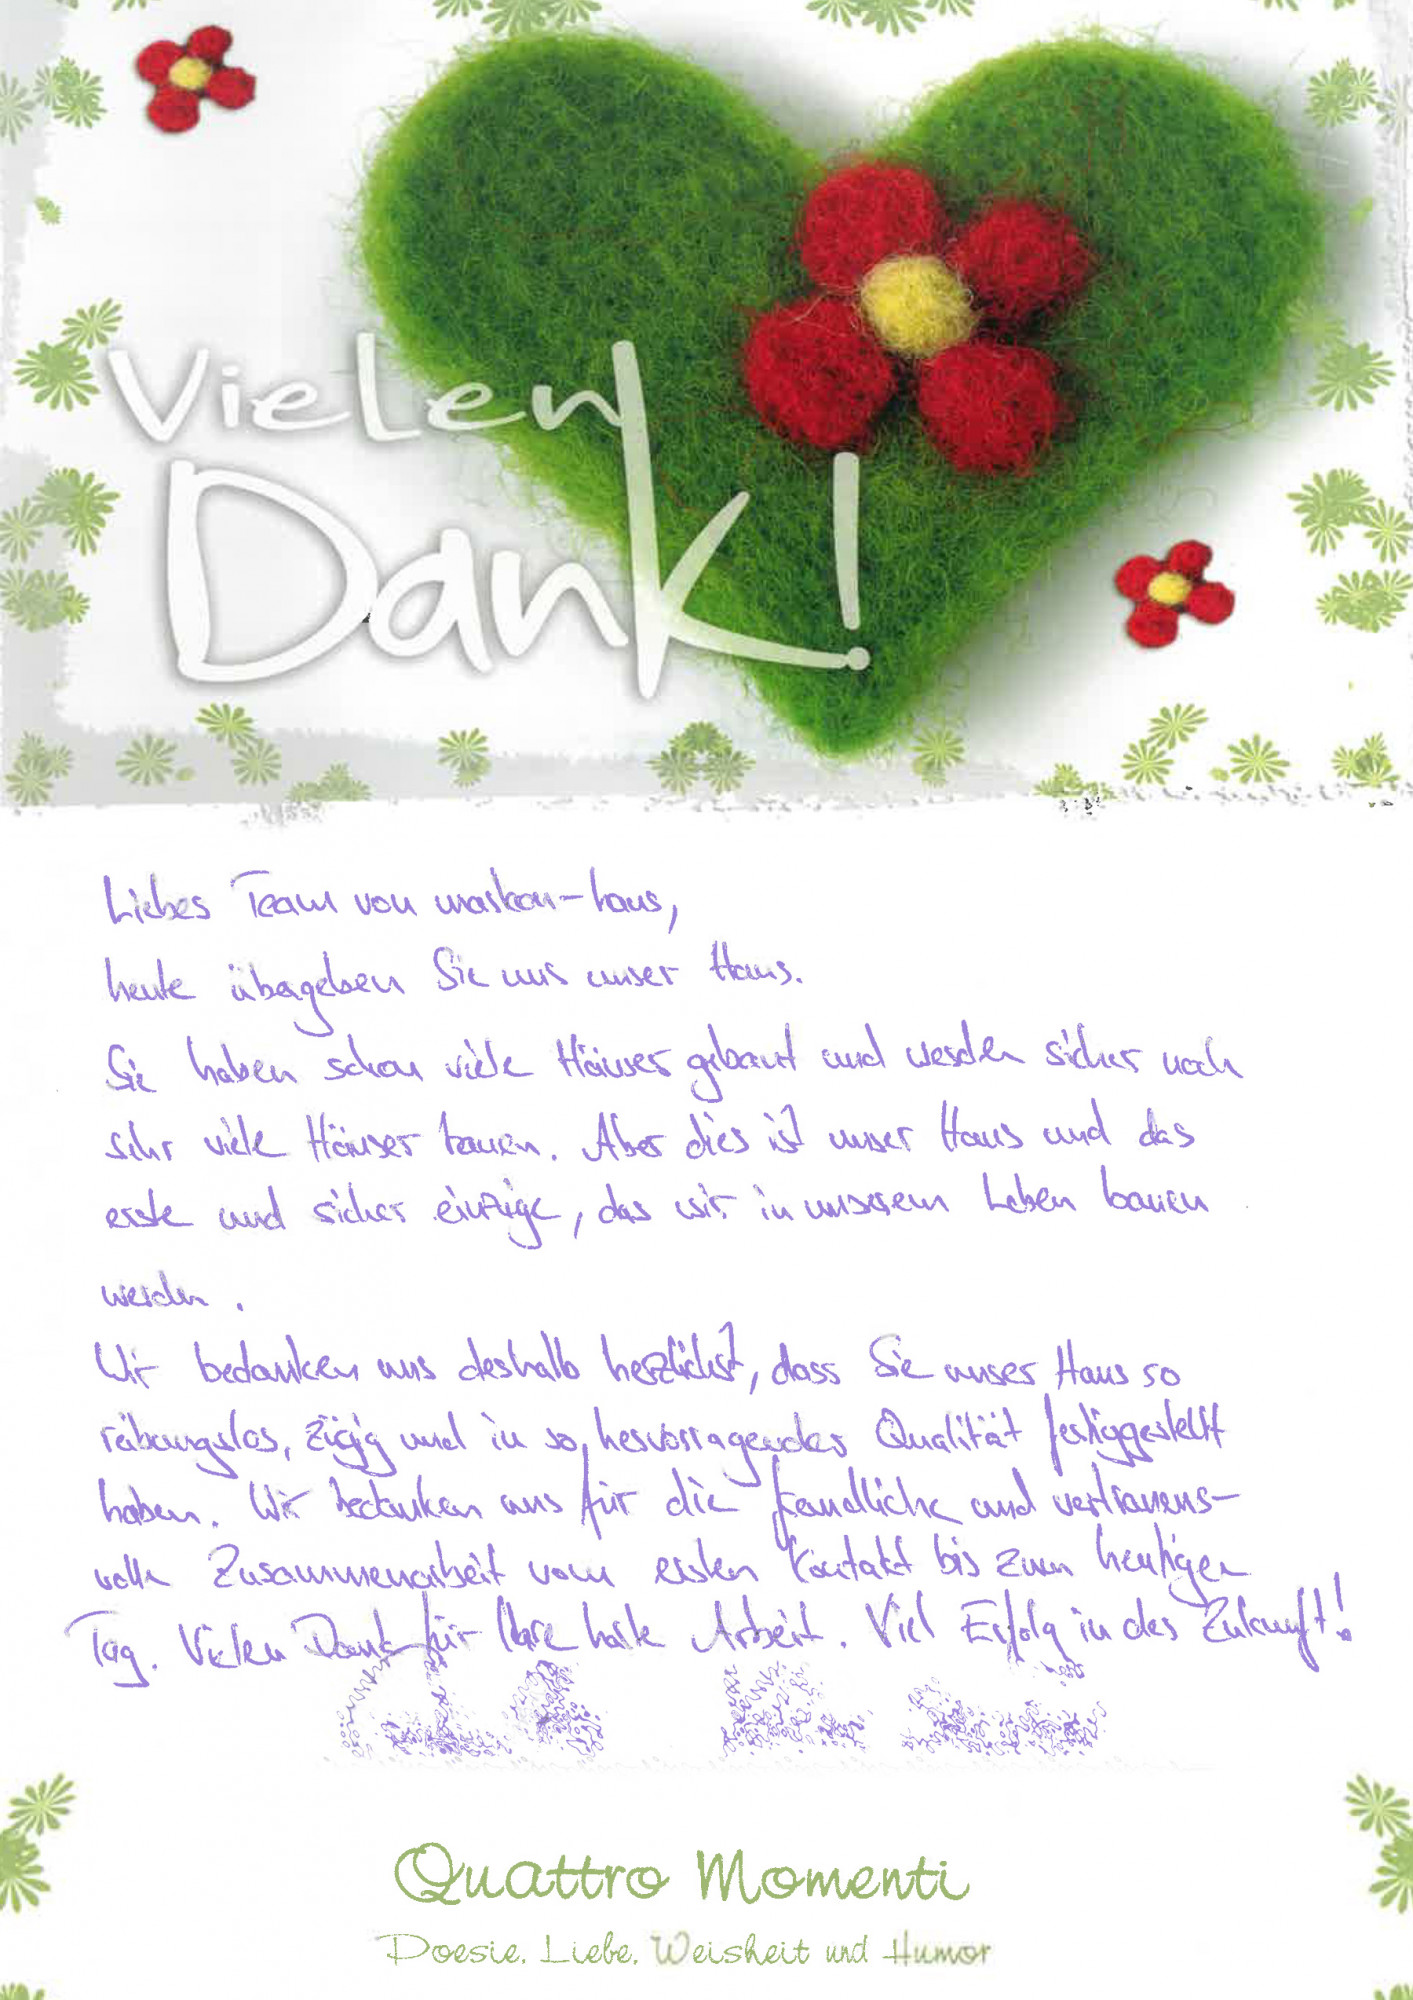 Vielen
Dank!
Liebes Team von maskon-haus,
heute übergeben Sie uns unser Haus.
Sie haben schon viele Häuser gebaut und werden sicher noch
sehr viele Häuser bauen. Aber dies ist unser Haus und das
erste und sicher einzige, das wir in unserem Leben bauen
werden.
Wir bedanken uns deshalb herzlichst, dass Sie unser Haus so
reibungslos, zügig und in so hervorragender Qualität fertiggestellt
haben. Wir bedanken uns für die freundliche und vertrauens-
volle Zusammenarbeit vom ersten Kontakt bis zum heutigen
Tag. Vielen Dank für Ihre harte Arbeit. Viel Erfolg in der Zukunft!
Quattro Momenti
Poesie, Liebe, Weisheit und Humor